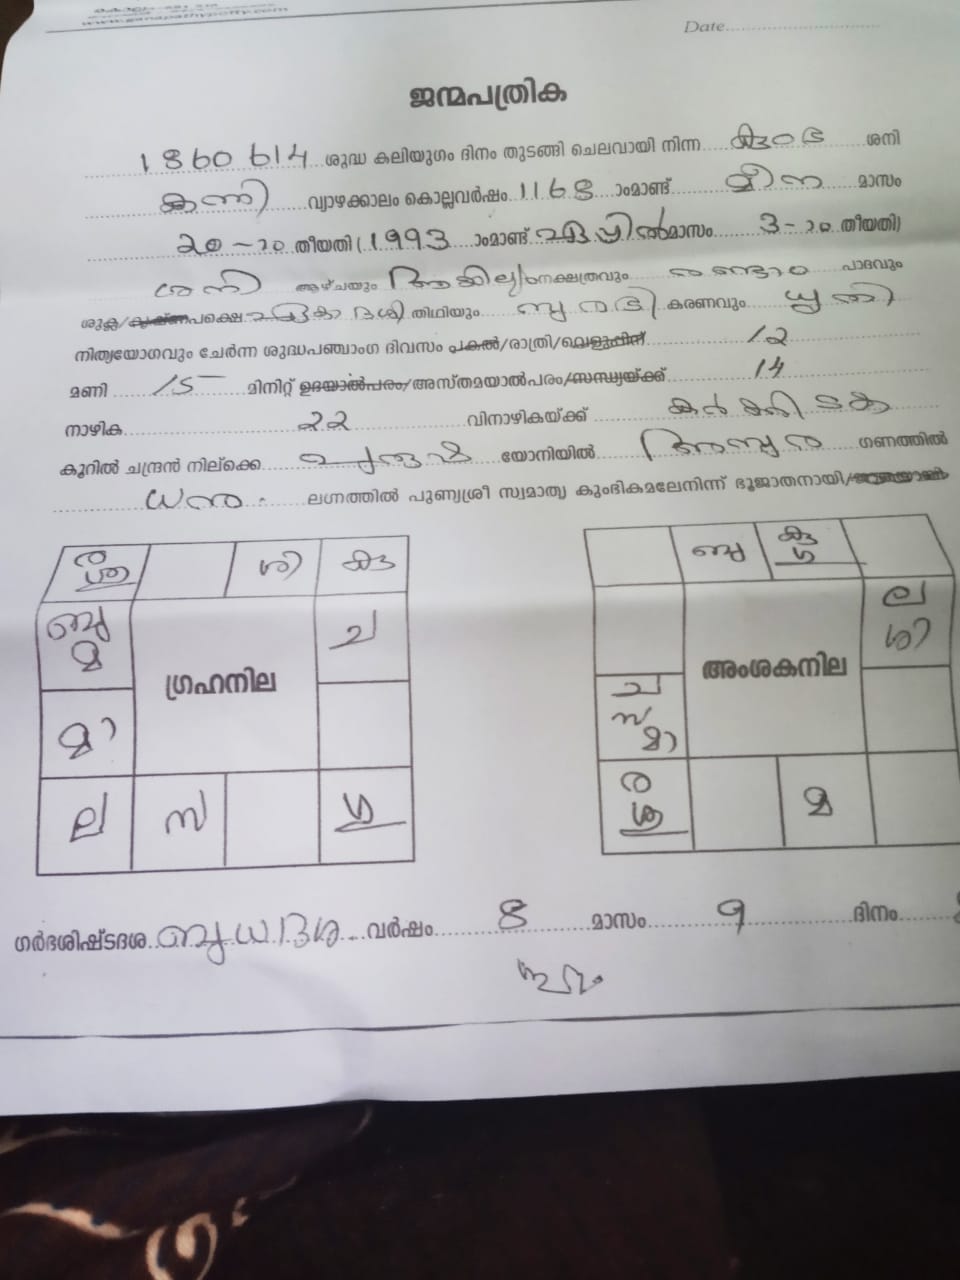 www.ganapathypotty.com
Date
ജന്മപത്രിക
1860614 ശുദ്ധ കലിയുഗം ദിനം തുടങ്ങി ചെലവായി നിന്ന കുംഭ ശനി
കന്നി വ്യാഴക്കാലം കൊല്ലവർഷം 1168 ാംമാണ്ട് മീന മാസം
20-ാം തീയതി (1993 ാംമാണ്ട് ഏപ്രിൽ മാസം 3-ാം തീയതി)
ശനി ആഴ്ചയും ആയില്യം നക്ഷത്രവും രണ്ടാം പാദവും
ശുക്ല/കൃഷ്ണപക്ഷെ ഏകാദശി തിഥിയും കരണവും ധൃതി
നിത്യയോഗവും ചേർന്ന ശുദ്ധപഞ്ചാംഗ ദിവസം പകൽ/രാത്രി/വെളുപ്പിന് 12
മണി 15 മിനിറ്റ് ഉദയാൽപരം/അസ്തമയാൽപരം/സന്ധ്യയ്ക്ക് 14
നാഴിക 22 വിനാഴികയ്ക്ക് കർക്കിടക
കൂറിൽ ചന്ദ്രൻ നില്ക്കെ പുരുഷ യോനിയിൽ അസുര ഗണത്തിൽ
ധനു ലഗ്നത്തിൽ പുണ്യശ്രീ സ്വമാതൃ കുംഭികമലേനിന്ന് ഭൂജാതനായി/
ര ശു ശി കു
ബു മ ച
മാ
ഗ്രഹനില
ല സ ഗു
ബു കു ഗു
ല ശി
അംശകനില
ച സ മാ
ര ശു മ
ഗർഭശിഷ്ടദശ ബുധദശ വർഷം 8 മാസം 9 ദിനം